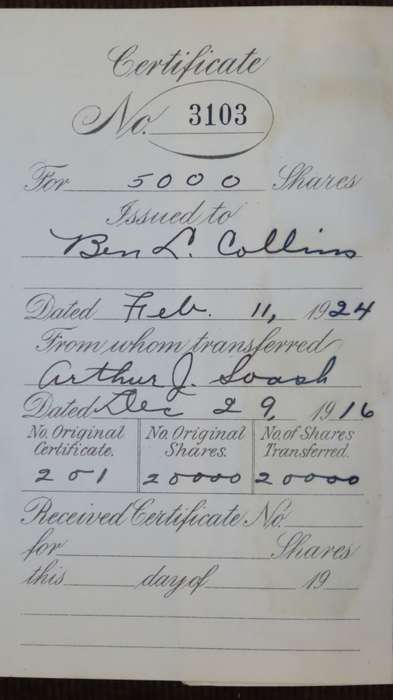 Certificate
No. 3103
For 5000 Shares
Issued to
Ben L. Collins
Dated Feb. 11, 1924
From whom transferred
Arthur J. Soash
Dated Dec 29, 1916
No. Original Certificate. No. Original Shares. No. of Shares Transferred.
201 20000 20000
Received Certificate No.
for Shares
this day of 19